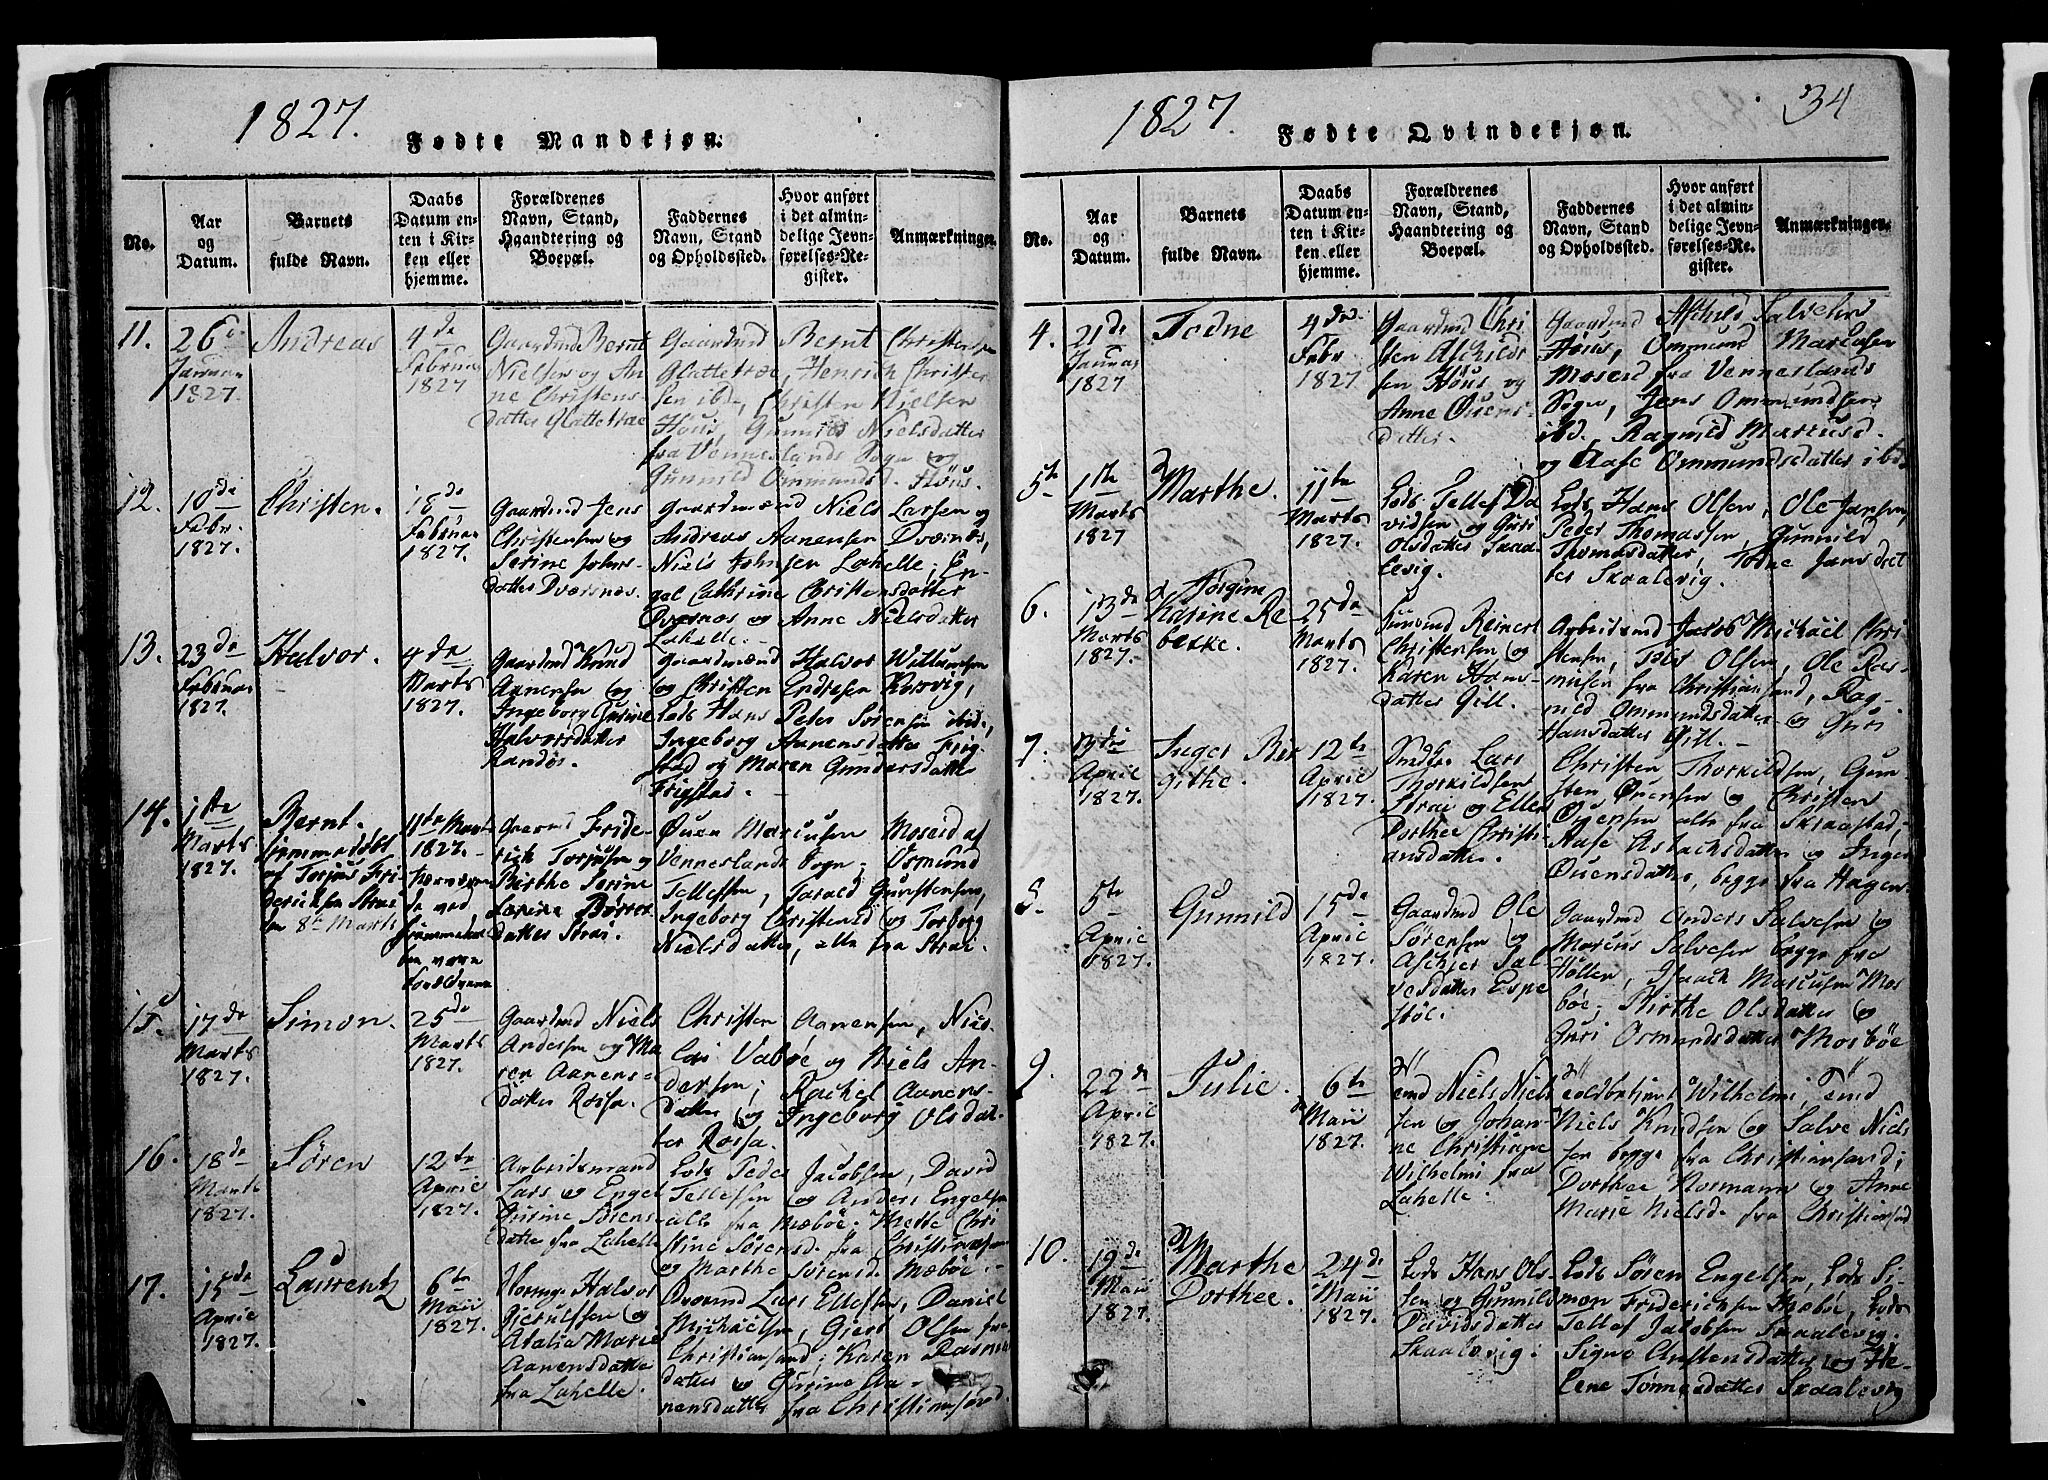 1827.
Fødte Mandkjøn.
No.
Aar
og
Datum.
Barnets
fulde Navn.
Daabs
Datum en-
ten i Kir-
ken eller
hjemme.
Forældrenes
Navn, Stand,
Haandtering og
Boepæl.
Faddernes
Navn, Stand
og Opholdssted.
Hvor anført
i det almin-
delige Jevn-
førelses-Re-
gister.
Anmærkninger.
11.
26
Januar
1827.
Andreas
4de
Februar
1827
Gaardmd Bernt
Nielsen og An
ne Christens
datter Glattetræ
Gaardmd Bernt Christensen
Glattetræ, Henrich Christen
sen ibd, Christen Nielsen
Høus Gunnild Nielsdatter
fra Venneslands Sogn og
Gunnild Ommundsd. Høus.
12.
10de
Febr.
1827.
Christen.
18de
Februar
1827.
Gaardmd Jens
Christensen og
Serine Johns
datter Dværsnes.
Gaardmænd Niels Larsen og
Andreas Aanensen Dværsnes,
Niels Johnsen Lahelle; En-
gel Cathrine Christensdatter
Dværsnes og Anne Nielsdatter
Lahelle.
13.
23de
Februar
1827.
Halvor.
4de
Marts
1827.
Gaardmd Knud
Aanensen og
Ingeborg Gurine
Halvorsdatter
Randøs.
Gaardmænd Halvor Willumsen
og Christen Endresen Korsvig,
Lods Hans Peter Sørensen ibid,
Ingeborg Aanensdatter Frig-
stad og Maren Gundersdatter
Frigstad.
14.
1ste
Marts
1827.
Bernt.
hjemmedøbt
af Torjus Fri
derichsen Straie
den 8de Marts
11te Marts
1827.
Gaardmd Fride-
rich Torjusen og
Birthe Serine
Lovine Børres
datter Strai.
Ouen Marcusen Moseid af
Venneslands Sogn; Osmund
Tellefsen, Tarald Gunstensen,
Ingeborg Christensd og Torborg
Nielsdatter, alle fra Strai.
15
17de
Marts
1827.
Simon.
25de
Marts
1827.
Gaardmd Niels
Andersen og Ma
ren Aanens-
datter Rossa.
Christen Aanensen, Nico
lai Vaboe og Niels An-
dersen; Rachel Aanens-
datter og Ingeborg Olsdat-
ter Rossa.
16.
18de
Marts
1827.
Søren
12te
April
1827.
Arbeidsmand
Lars og Engel
Gurine Sørens-
datter fra Lahelle
Lods Peder Jacobsen, David
Tellefsen og Anders Engelsen
alle fra Mæbøe; Mette Chri
stine Sørensd. fra Christiansand
og Marthe Sørensd Mæbøe.
17.
15de
April
1827.
Laurentz
6te
Maii
1827.
Halvor
Gjerulfsen og
Atalia Marie
Aanensdatter
fra Lahelle.
Lars Ellefsen, Daniel
Michaelsen, Gjert Olsen fra
Christiansand; Karen Rasmus
datter og Gurine Aa-
nensdatter fra Christiansand.
1827.
34
Fødte Qvindekjøn.
No.
Aar
og
Datum.
Barnets
fulde Navn.
Daabs
Datum en-
ten i Kir-
ken eller
hjemme.
Forældrenes
Navn, Stand,
Haandtering og
Boepæl.
Faddernes
Navn, Stand
og Opholdssted.
Hvor anført
i det almin-
delige Jevn-
førelses-Re-
gister.
Anmærkninger.
4.
21de
Januar
1827
Todne
4de
Febr
1827.
Gaardmd Chri
sten Aschilds
sen Høus og
Anne Ouens-
datter.
Gaardmd Aschild Salvesen
Høus, Ommund Marcusen
Moseid fra Venneslands
Sogn, Jens Ommundsen
ibd. Ragnild Marcusd.
og Aase Ommundsdatter ibd
5te
1te
Marts
1827
Marthe.
11te
Marts
1827.
Lods Tellef Da
vidsen og Guri
Olsdatter Skaa-
levig.
Lods Hans Olsen, Ole Jansen,
Peder Thomassen, Gunnild
Thomasdatter, Todne Jansdat
ter Skaalevig.
6.
13de
Marts
1827.
Torgine
Karine Re
bekke.
25de
Marts
1827.
Reinert
Christensen og
Karen Hans-
datter Gill.
Arbeidsmd Jacob Michael Chri-
stensen, Peder Olsen, Ole Ras-
musen fra Christiansand, Rag-
nild Ommundsdatter og Guri
Hansdatter Gill.
7.
April
1827.
Inger Bir
githe.
12te
April
1827.
Lars
Thorkildsen
Strai og Ellen
Dorthee Christi
ansdatter.
Christen Thorkildsen, Gun-
sten Ouensen og Christen
Ougensen alle fra Skraastad,
Aase Aslachsdatter og Inger
Ouensdatter, begge fra Hagen.
8.
5te
April
1827.
Gunnild
15de
April
1827.
Gaardmd Ole
Sørensen og
Aschjer Sal-
vesdatter Espe
støl.
Gaardmd Anders Salvesen og
Marcus Salvesen begge fra
Hølten, Isaach Marcusen Mos
bøe; Birthe Olsdatter og
Guri Osmundsdatter Mosbøe
9.
22de
April
1827.
Julie.
6te
Maii
1827.
Niels Niel
sen og Johan-
ne Christiane
Wilhelmi fra
Lahelle.
Wilhelmi,
Niels Knudsen og Salve Niel
sen begge fra Christiansand;
Dorthee Normann og Anne
Marie Nielsd. fra Christiansand
10.
19de
Maii
1827.
Marthe
Dorthee.
24de
Maii
1827.
Lods Hans Ols-
sen og Gunnild
Davidsdatter
Skaalevig.
Lods Søren Engelsen, Lods Si-
mon Friderichsen Mæbøe, Lods
Tellef Jacobsen Skaalevig.
Signe Christensdatter og He-
lene Tønnesdatter Skaalevig